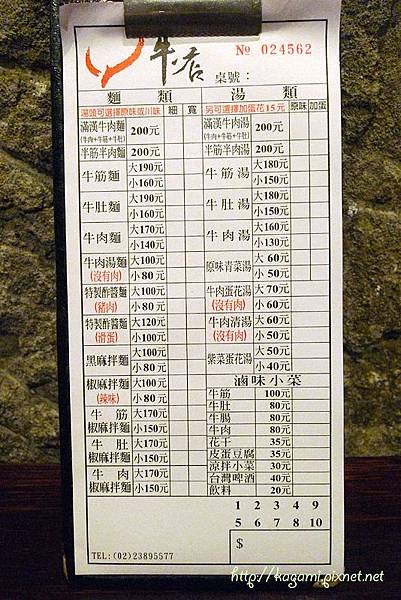 牛店
№ 024562
桌號：
麵類
湯頭可選擇原味或川味 細 寬
滿漢牛肉麵 200元
(牛肉+牛筋+牛肚)
半筋半肉麵 200元
牛筋麵 大190元 小160元
牛肚麵 大190元 小160元
牛肉麵 大170元 小140元
牛肉湯麵 (沒有肉) 大100元 小80元
特製酢醬麵 (豬肉) 大100元 小80元
特製酢醬麵 (滑蛋) 大120元 小100元
黑麻拌麵 大100元 小80元
椒麻拌麵 (辣味) 大100元 小80元
牛筋椒麻拌麵 大170元 小150元
牛肚椒麻拌麵 大170元 小150元
牛肉椒麻拌麵 大170元 小150元
湯類
另可選擇加蛋花15元 原味 加蛋
滿漢牛肉湯 200元
(牛肉+牛筋+牛肚)
半筋半肉湯 200元
牛筋湯 大180元 小150元
牛肚湯 大180元 小150元
牛肉湯 大160元 小130元
原味青菜湯 大60元 小50元
牛肉蛋花湯 (沒有肉) 大70元 小60元
牛肉清湯 (沒有肉) 大60元 小50元
紫菜蛋花湯 大50元 小40元
滷味小菜
牛筋 100元
牛肚 80元
牛腸 80元
牛肉 80元
花干 35元
皮蛋豆腐 35元
涼拌小菜 30元
台灣啤酒 40元
飲料 20元
1 2 3 4 9
5 6 7 8 10
$
TEL:(02)23895577
http://kagami.pixnet.net